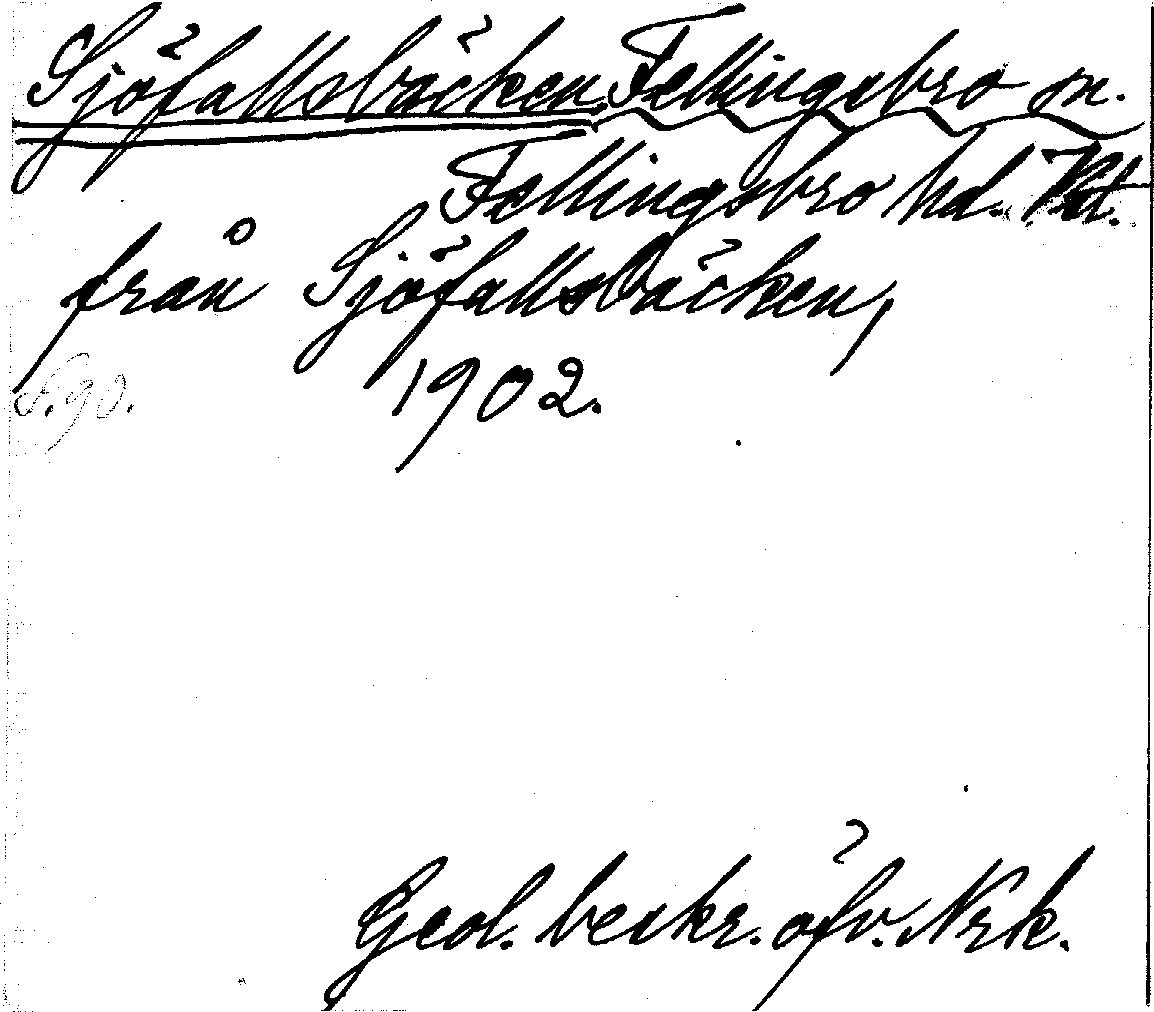 Sjöfallsbäcken Fellingsbro sn.
Fellingsbro hd.
från Sjöfallsbäcken,
1902.
S. 90.
Geol. beskr. öfv. Nrk.